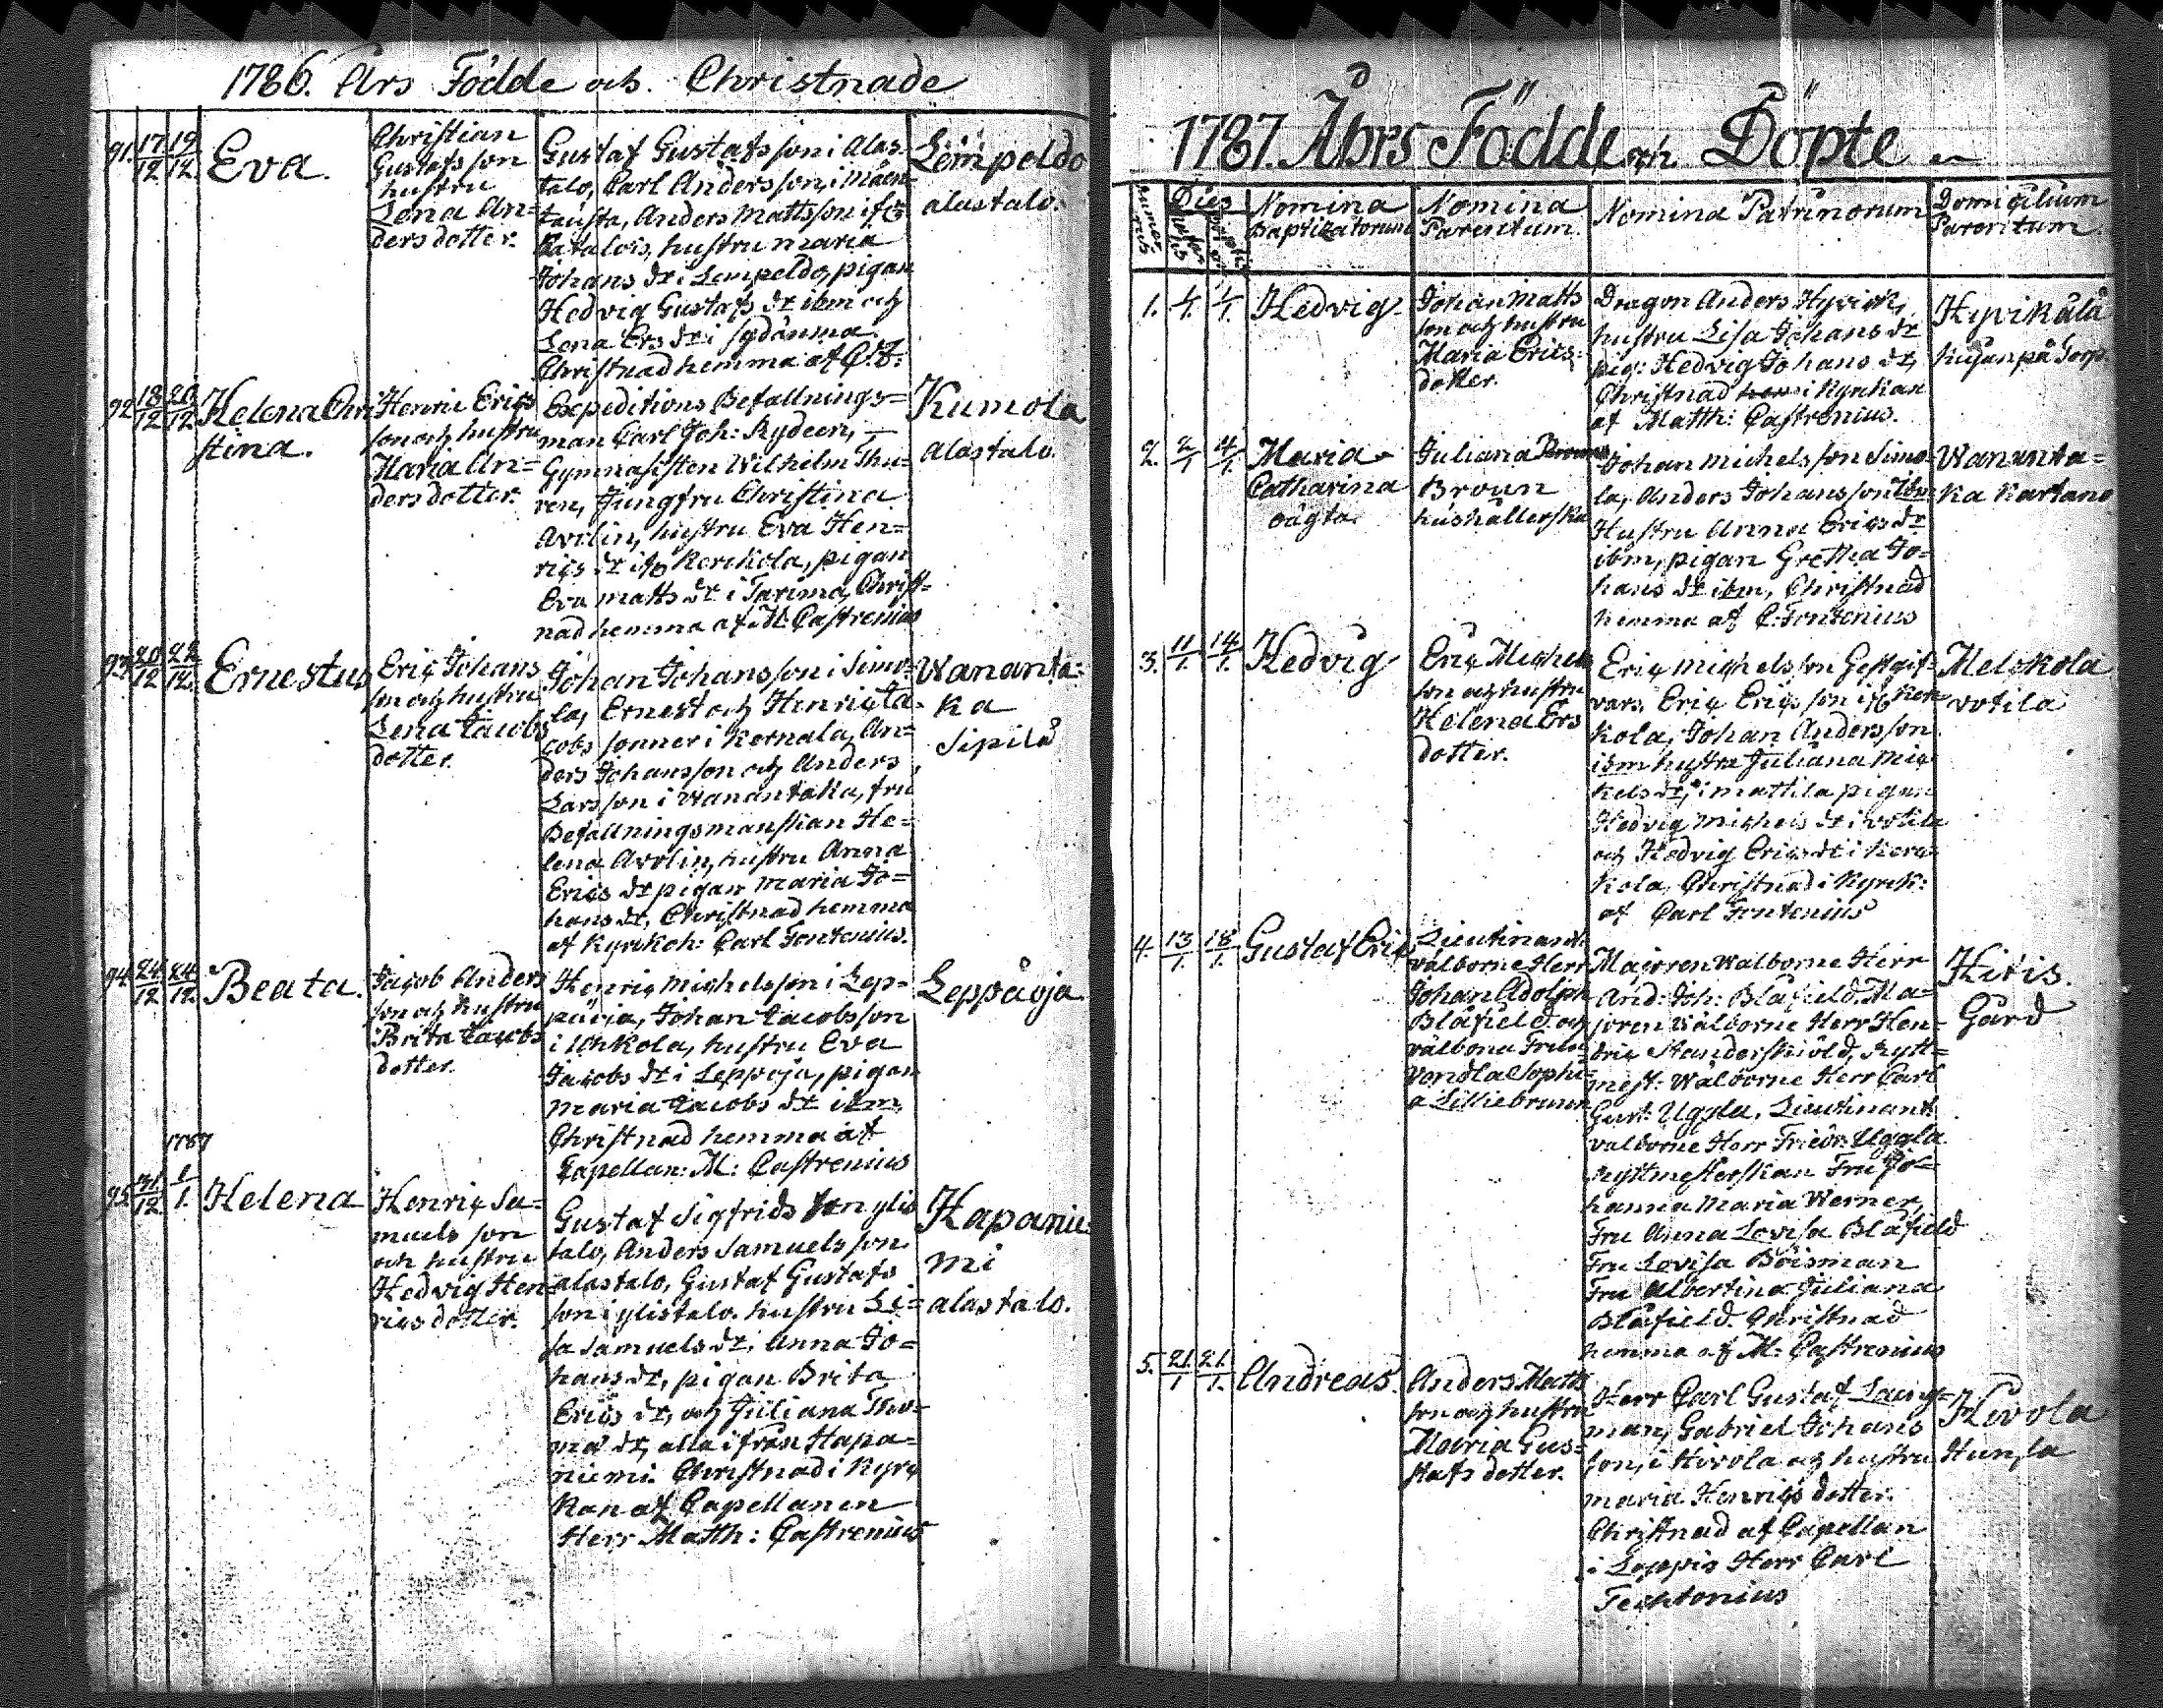 1786. Års Födde och Christnade
91. 17/12 19/12 Eva.
Christian
Gustafs son
hustru
Lena An=
ders dotter.
Gustaf Gustafs son i Alas
talo, Carl Anders son i Mäen=
tausta, Anders Matts son if:
hustru Maria
Johans dr i Lempeldo, pigan
Hedvig Gustafs dr ibm och
Lena Ers dr i sydänma
Christnad hemma af C. F.
Lempeldo
alastalo.
92 18/12 20/12 Helena Chri
stina.
Henric Erics
son och hustru
Maria An=
ders dotter.
Expeditions Befallnings=
man Carl Joh: Rydeen,
Gymnasisten Wilhelm Thu=
ren, Jungfru Christina
Avelin, hustru Eva Hen=
rics dr Kerckola, pigan
Eva Matts dr i Tarima, Christ=
nad hemma af M: Castrenius
Kumola
alastalo.
93 20/12 22/12 Ernestus
Eric Johans
son och hustru
Lena Jacobs
dotter.
Johan Johans son i Simo=
la, Ernest och Henric Ja=
cobs sönner i Kernala, An=
ders Johansson och Anders
Lars son i Wanantaka, fru
Befallningsmanskan He=
lena Avelin, hustru Anna
Erics dr pigan Maria Jo=
hans dr, Christnad hemma
af Kyrkoh: Carl Fontenius.
Wananta=
ka
Sipilä
94 24/12 24/12 Beata.
Jacob Anders
son och hustru
Brita Jacobs
dotter.
Henric Michelsson i Lep=
päoja, Johan Jacobsson
i Uhkola, hustru Eva
Jacobs dr i Leppoja, pigan
Maria Jacobs dr ibm,
Christnad hemma af
Capellan: M: Castrenius
Leppåoja
1787
95 31/12 1/1. Helena
Henric Sa=
muels son
och hustru
Hedvig Hen
rics dotter.
Gustaf Sigfrids son ylis
talo, Anders Samuels son
alastalo, Gustaf Gustafs
son i ylistalo. hustru Li=
sa Samuels dr, Anna Jo=
hans dr, pigan Brita
Erics dr, och Juliana Tho=
ma dr, alla ifrån Hapa=
niemi. Christnad i Kyrc
kan af Capellanen
Herr Matth: Castrenius
Hapanie
mi
alastalo.
1787. Åhrs Födde och Döpte
Numer
Dies
Nomina
Baptizatorum
Nomina
Parentum.
Nomina Patrinorum
Domicilium
Parentum.
1. 1/1. 4/1. Hedvig.
Johan Matts
son och hustru
Maria Erics=
dotter.
Dragon Anders Hyvick,
hustru Lisa Johans dr
pig: Hedvig Johans dr,
Christnad hem i Kyrckan
af Matth: Castrenius.
Hyvikälä
på Torp.
2. 2/1 4/1. Maria
Catharina
oägta.
Juliana
Broun
hushållerska
Johan Michels son Simo
la, Anders Johans son ibm
Hustru Anna Erics dr
ibm, pigan Gretha Jo=
hans dr ibm, Christnad
hemma af C: Fontenius
Wananta=
ka Kartano
3. 11/1. 14/1. Hedvig
Eric Michels
son och hustru
Helena Ers
dotter.
Eric Michels son Gestgif=
vars, Eric Erics son i Kerc
kola, Johan Anders son
ibm hustru Juliana Mic
kels dr, i Mattila pigan
Hedvig Michels dr i Votila
och Hedvig Erics dr i Kerc
kola, Christnad i Kyrck:
af Carl Fontenius
Melckola
votila
4. 13/1. 18/1. Gustaf Eric
Lieutinant.
välborne Herr
Johan Adolph
Blåfield och
välborna Frun
Vendla Sophi=
a Lilliebrunn
Majoren Wälborne Herr
And: Joh: Blåfield. Ma=
joren Wälborne Herr Hen=
dric Standerskiöld, Rytt=
mest: Wälborne Herr Carl
Gust: Uggla, Lieutinant
välborne Herr Friedr: Uggla
Ryttmesterskan Fru Jo=
hanna Maria Werner,
Fru Anna Lovisa Blåfield
Fru Lovisa Boisman
Fru Albertina Juliana
Blåfield. Christnad
hemma af M: Castrenius
Hitis.
Gård
5. 21/1 21/1. Andreas.
Anders Matts
son och hustru
Maria Gus=
tafs dotter.
Herr Carl Gustaf Laing=
man, Gabriel Johans
son, i Hivola och hustru
Maria Henrics dotter.
Christnad af Capellan
i Loppis Herr Carl
Techtonius
Hivola
Hunsa